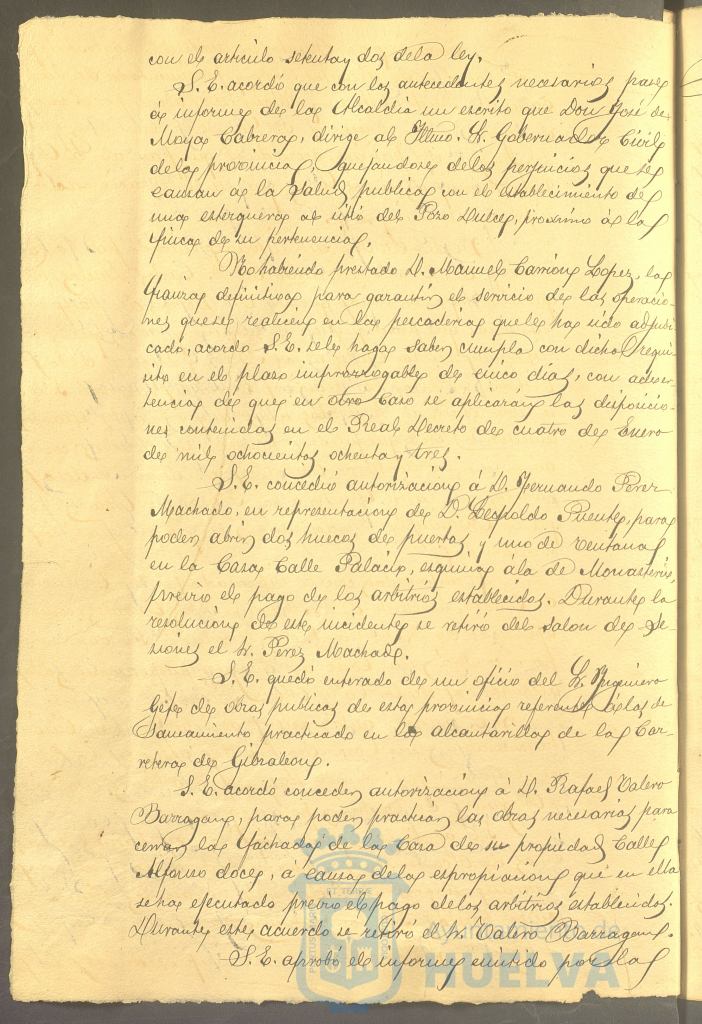 con el articulo setenta y dos de la ley.
S. E. acordó que con los antecedentes necesarios pase
á informe de la Alcaldía un escrito que Don José de
Moya Cabrera, dirige al Iltmo. Sr. Gobernador Civil
de la provincia, quejandose de los perjuicios que se
causan á la Salud publica con el establecimiento de
una estercolera al sitio del Pozo Dulce, proximo á la
finca de su pertenencia.
No habiendo prestado D. Manuel Carrion Lopez, la
fianza definitiva para garantir el servicio de las operacio-
nes que se realicen en la pescaderia que le ha sido adjudi-
cado, acordó S. E. se le haga saber cumpla con dicho requi-
sito en el plazo improrrogable de cinco dias, con adver-
tencia de que en otro caso se aplicarán las disposicio-
nes contenidas en el Real Decreto de cuatro de Enero
de mil ochocientos ochenta y tres.
S. E. concedió autorizacion á D. Fernando Perez
Machado, en representacion de D. Leopoldo Puente, para
poder abrir dos huecos de puertas y uno de ventana
en la Casa Calle Palacio, esquina á la de Monasterio,
previo el pago de los arbitrios establecidos. Durante la
resolucion de este incidente se retiró del salon de se-
siones el Sr. Perez Machado.
S. E. quedó enterado de un oficio del Sr. Ingeniero
Gefe de obras publicas de esta provincia referente á las de
Saneamiento practicado en la alcantarilla de la Car-
retera de Gibraleon.
S. E. acordó conceder autorizacion á D. Rafael Valero
Barragan, para poder practicar las obras necesarias para
cerrar la fachada de la Casa de su propiedad Calle
Alfonso doce, á causa de la espropiacion que en ella
se ha ejecutado previo el pago de los arbitrios establecidos.
Durante este acuerdo se retiró el Sr. Valero Barragan.
S. E. aprobó el informe emitido por la
Ayuntamiento de
HUELVA